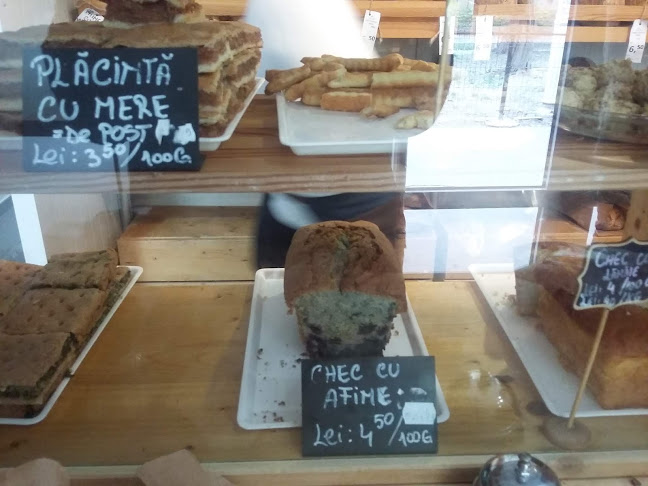 PLĂCINTĂ
CU MERE
=DE POST
Lei: 3 50/100G
6,50
CHEC CU
AFINE:
Lei: 4 50/100G
CHEC CU
Lei: 4 /100G